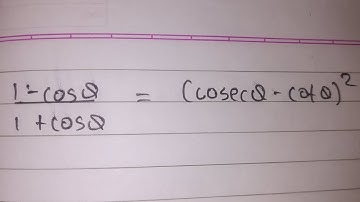 1 - cosθ / 1 + cosθ = (cosecθ - cotθ)²